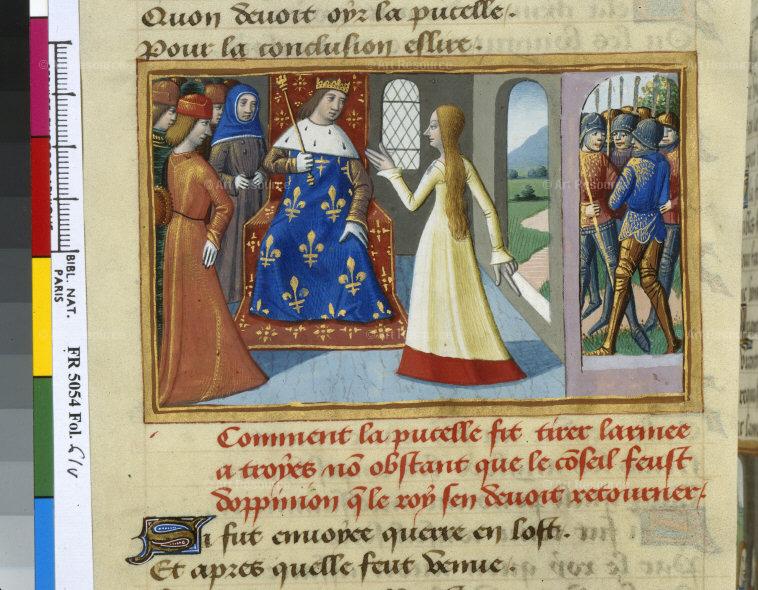 Quon devoit oyr la pucelle.
Pour la conclusion eslire.
Comment la pucelle fit tirer larmee
a troyes nō obstant que le cōseil feust
doppinion q̄ le roy sen devoit retourner.
Si fut envoyee querre en lost.
Et apres quelle feut venue.
BIBL NAT.
PARIS
FR 5054 Fol.
© Art Resource